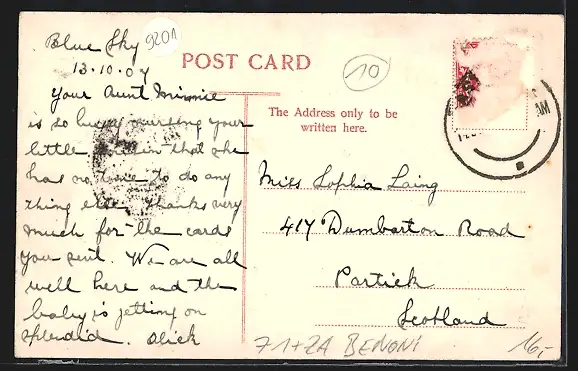 Blue Sky
13.10.04
9201
POST CARD
10
Your Aunt Minnie
is so busy nursing your
little that she
has no time to do any
thing else. Thanks very
much for the cards
you sent. We are all
well here and the
baby is getting on
splendid. Alick
The Address only to be
written here.
AM
Miss Sophia Laing
417 Dumbarton Road
Partick
Scotland
71+ZA BENONI
16,-